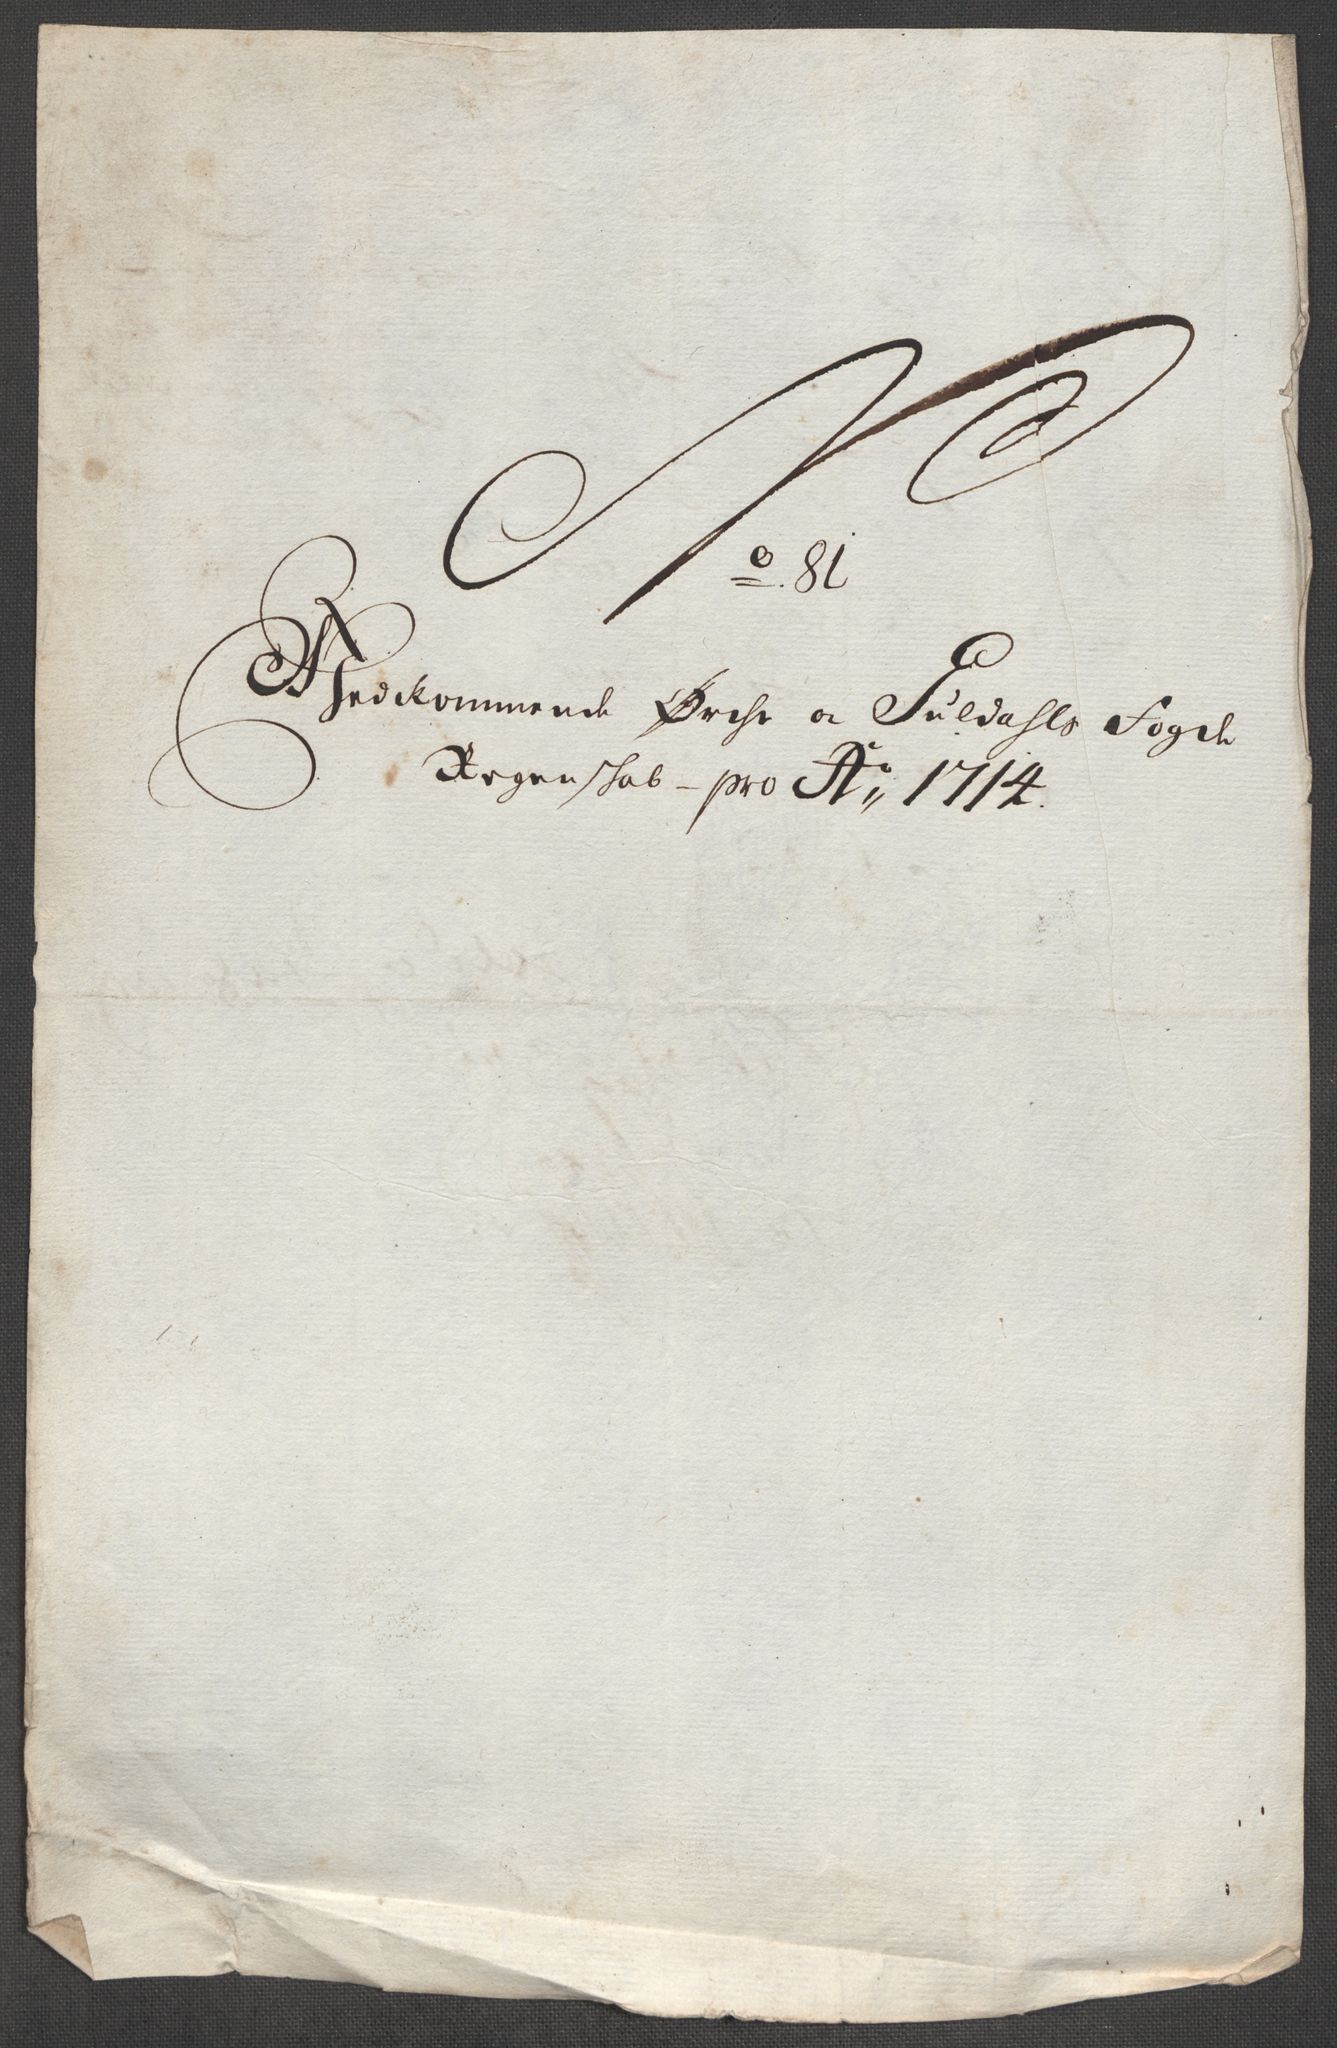 No. 81
Vedkommende Ørche oc Guldahls Fogde
Regenskab - pro Ao, 1714.